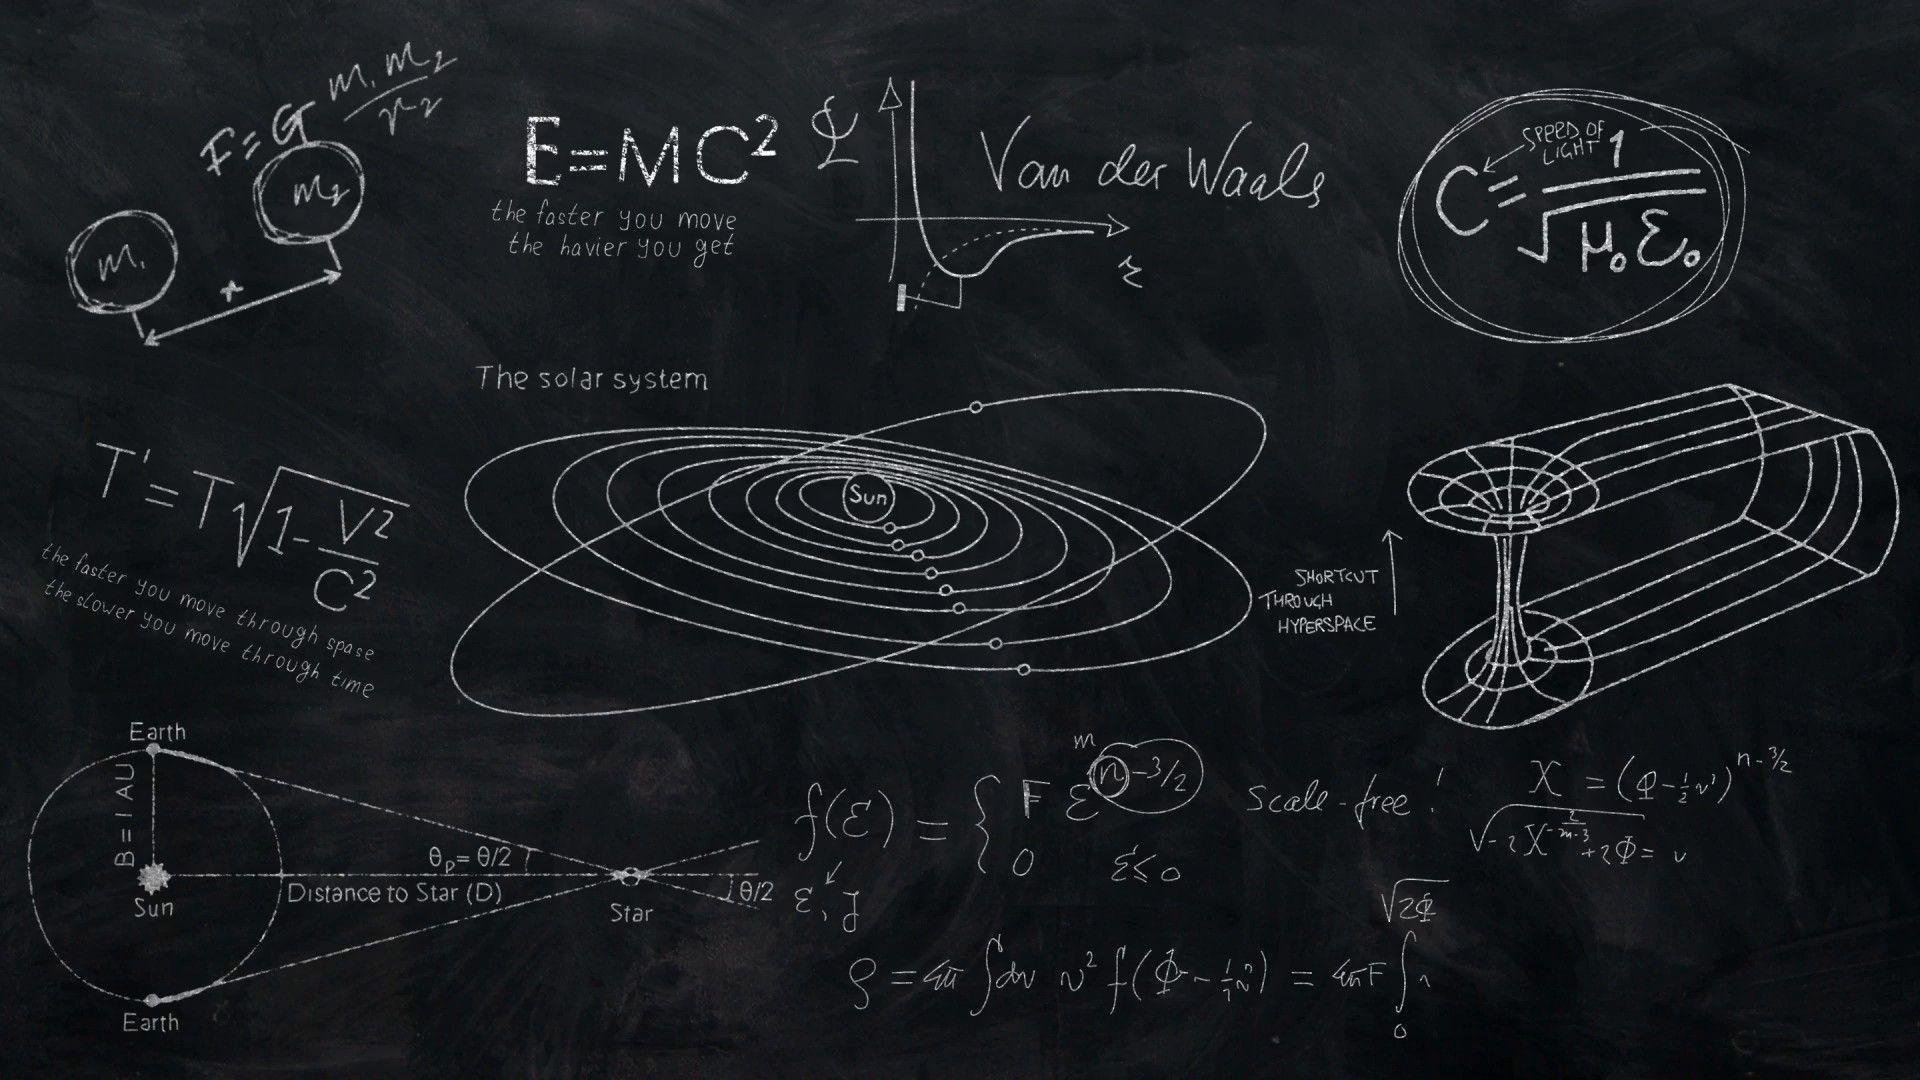 F=G m₁m₂/r²
m₂
m₁
r
E=MC²
the faster you move
the havier you get
Van der Waals
r
SPEED OF
LIGHT
C=1/√μ₀ε₀
The solar system
Sun
T'=T√1-V²/C²
the faster you move through spase
the slower you move through time
SHORTCUT
THROUGH
HYPERSPACE
Earth
B=1AU
Sun
θp=θ/2
Distance to Star (D)
Star
θ/2
Earth
m
f(ε) = { F ε^(n-3/2)
0 ε≤0
scale-free!
ε, J
√2Φ
0